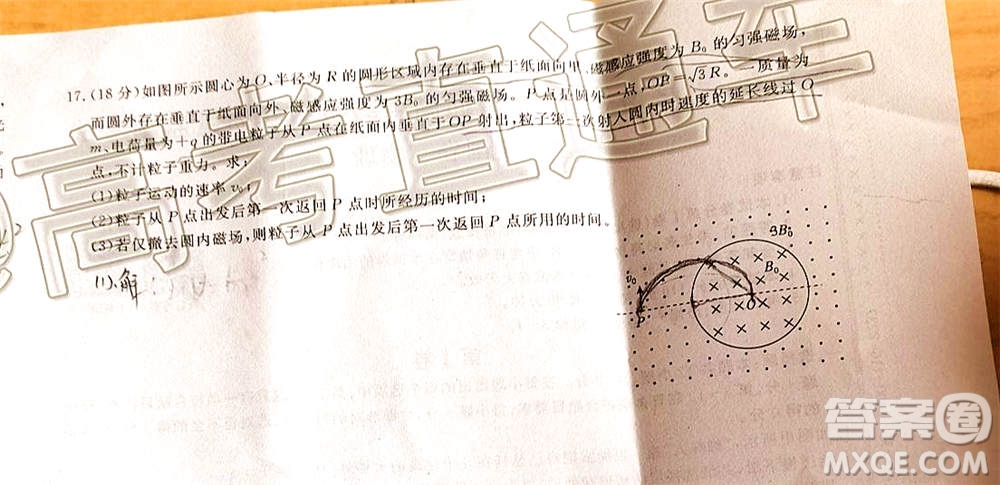 17.(18分)如图所示圆心为O、半径为R的圆形区域内存在垂直于纸面向里、磁感应强度为B₀的匀强磁场,
而圆外存在垂直于纸面向外、磁感应强度为3B₀的匀强磁场。P点是圆外一点,OP=√3R。一质量为
m、电荷量为+q的带电粒子从P点在纸面内垂直于OP射出,粒子第一次射入圆内时速度的延长线过O
点,不计粒子重力。求:
(1)粒子运动的速率v₀;
(2)粒子从P点出发后第一次返回P点时所经历的时间;
(3)若仅撤去圆内磁场,则粒子从P点出发后第一次返回P点所用的时间。
(1)解:
3B₀
B₀
v₀
P
O
高考直通车
答案圈
MXQE.COM